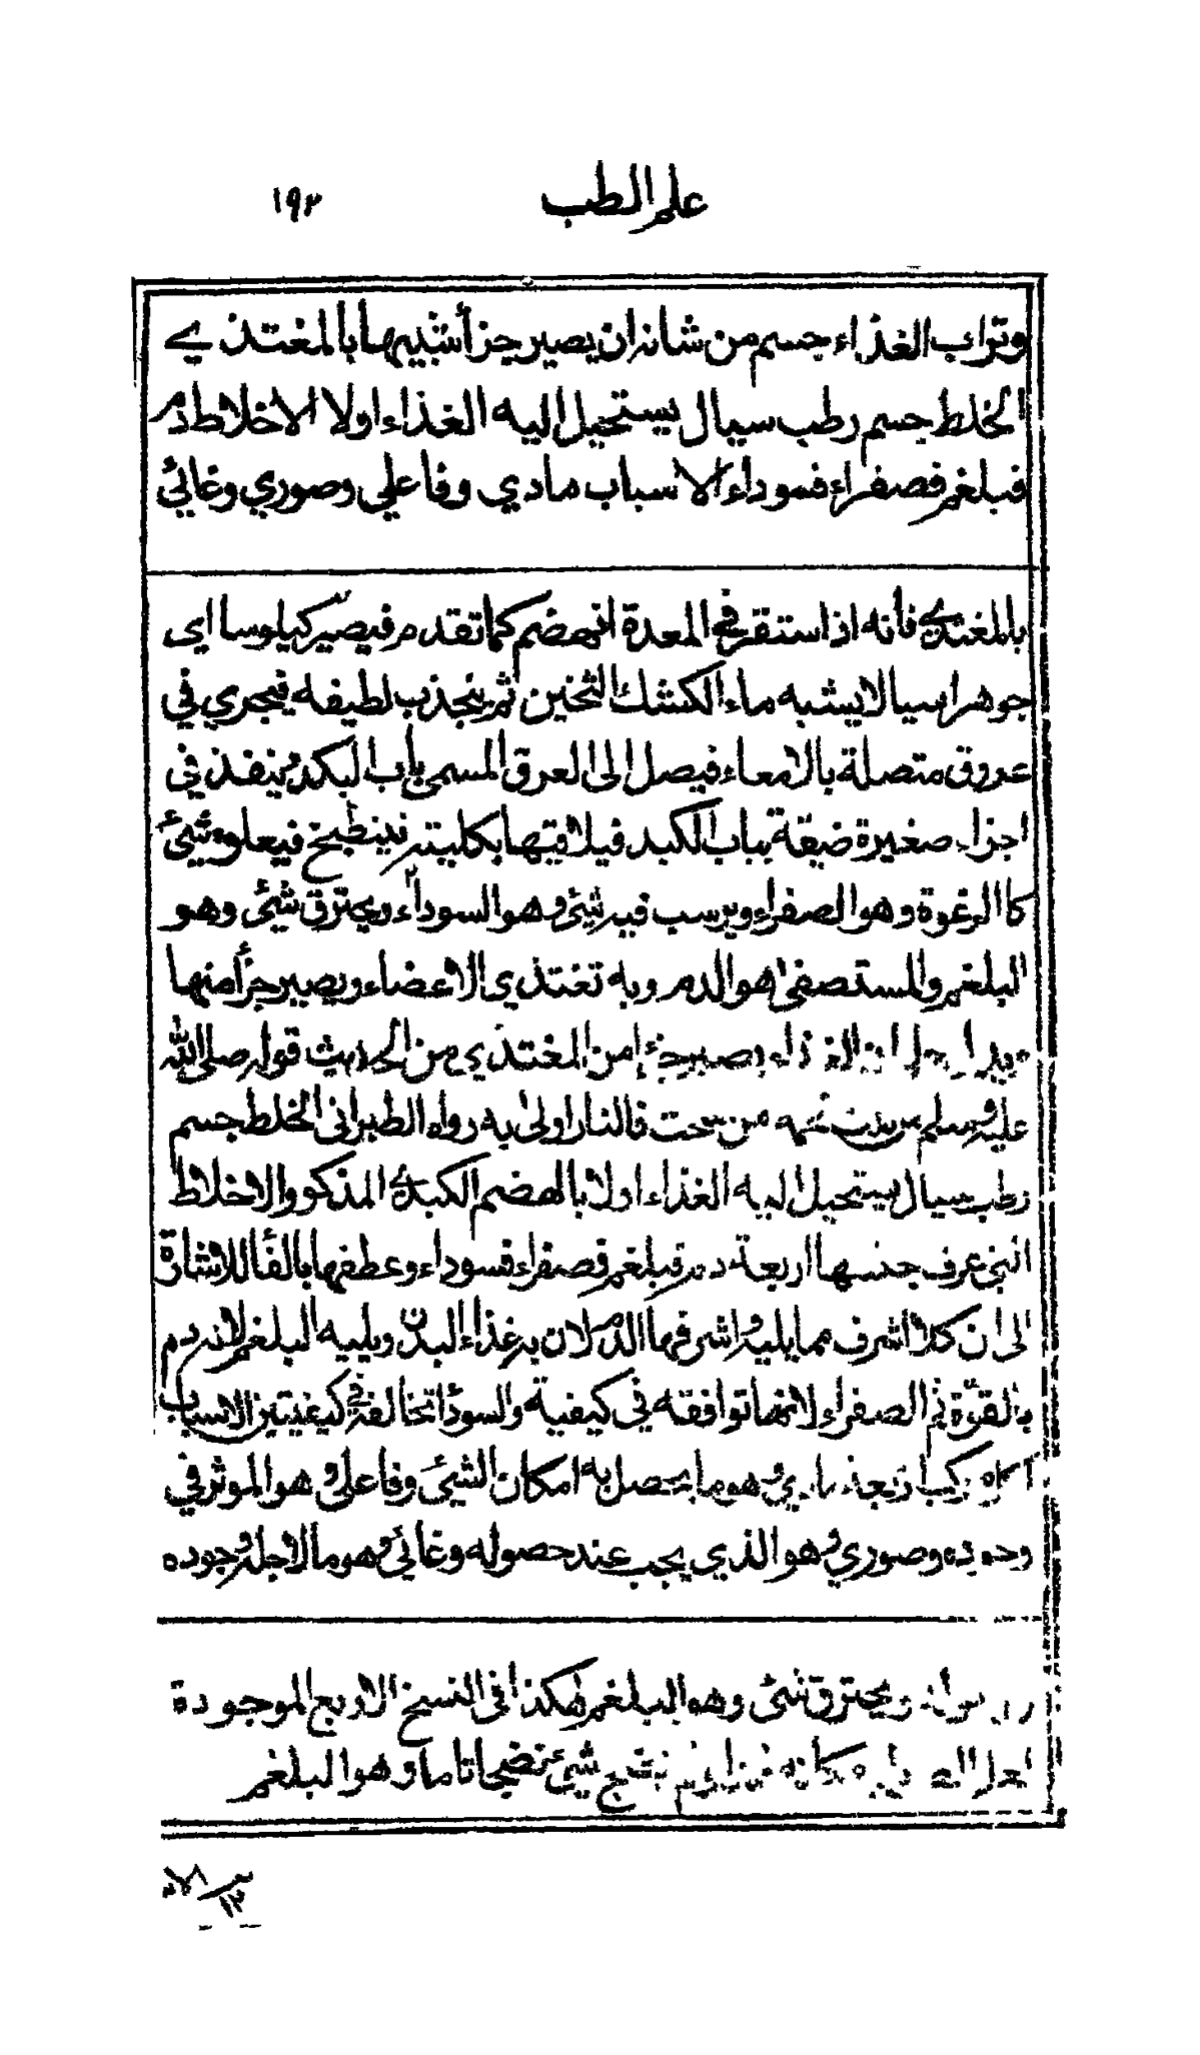 علم الطب ١٩٣
وتراب الغذاء جسم من شانه ان يصير جزأ شبيها بالمغتذي
الخلط جسم رطب سيال يستحيل اليه الغذاء اولا الاخلاط دم
فبلغم فصفراء فسوداء الاسباب مادي وفاعلي وصوري وغائي
بالمغتذي فأنه اذا ستقر في المعدة انهضم كما تقدم فيصير كيلوسا اي
جوهرا سيالا يشبه ماء الكشك الثخين ثم ينجذب لطيفه فيجري في
عروق متصلة بالامعاء فيصل الى العرق المسمى بباب الكبد وينفذ في
اجزاء صغيرة ضيقة بباب الكبد فيلاقيها بكليته فينطبخ فيعلوه شئ
كالرغوة وهو الصفراء ويرسب فيه شئ وهو السوداء ويحترق شئ وهو
البلغم والمستصفى هو الدم وبه تغتذي الاعضاء ويصير جزأ منها
الغذاء يصير جزءا من المغتذي من الحديث قوله صلى الله
عليه وسلم من نبت لحمه من سحت فالنار اولى به رواه الطبراني الخلط جسم
رطب سيال يستحيل اليه الغذاء اولا بالهضم الكبدي المذكور والاخلاط
التي عرف جنسها اربعة دم فبلغم فصفراء فسوداء وعطفها بالفأ للاشارة
الى ان كلا اشرف مما يليه واشرفها الدم لان به غذاء البدن ويليه البلغم لانه دم
بالقوة ثم الصفراء لانها توافقه في كيفية والسوداتخالفه في كيفيتين الاسباب
وهو ما يحصل به امكان الشئ وفاعلي وهو الموثر في
وجوده وصوري وهو الذي يجب عند حصوله وغائي وهو ما لاجله وجوده
ويحترق شئ وهو البلغم هكذا في النسخ الاربع الموجودة
نضج شئ نضجا تاما وهو البلغم